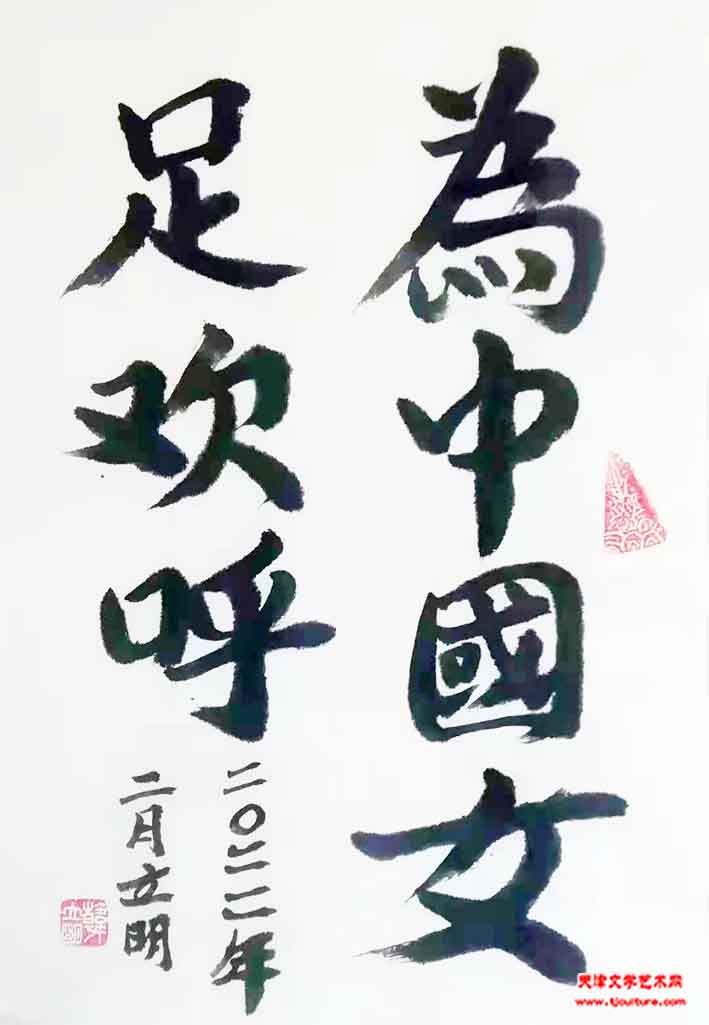 為中國女
足欢呼
二〇二二年
二月立明
天津文学艺术网
www.tjculture.com